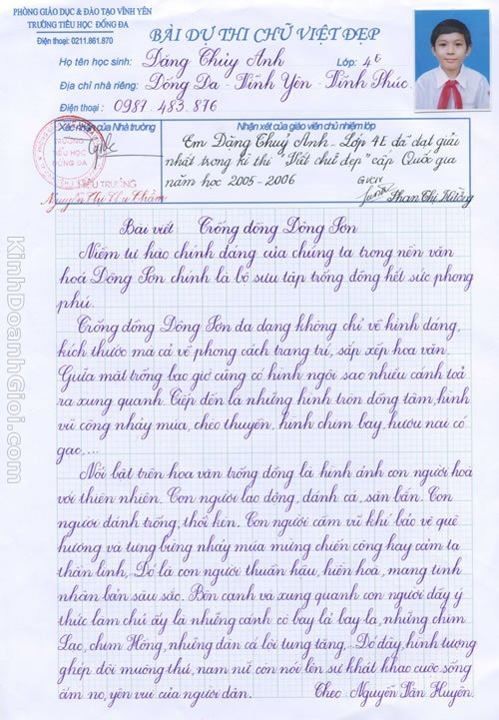 PHÒNG GIÁO DỤC & ĐÀO TẠO VĨNH YÊN
TRƯỜNG TIỂU HỌC ĐỐNG ĐA
Điện thoại: 0211.861.870
BÀI DỰ THI CHỮ VIỆT ĐẸP
Họ tên học sinh: Đặng Thùy Anh Lớp: 4E
Địa chỉ nhà riêng: Đống Đa - Vĩnh Yên - Vĩnh Phúc.
Điện thoại: 0987 483 876
Xác nhận của Nhà trường
Nhận xét của giáo viên chủ nhiệm lớp
Em Đặng Thuỳ Anh - Lớp 4E đã đạt giải
nhất trong kì thi "Viết chữ đẹp" cấp Quốc gia
năm học 2005-2006
GVCN
HIỆU TRƯỞNG
Phan Thị Hường
Bài viết Trống đồng Đông Sơn
Niềm tự hào chính đáng của chúng ta trong nền văn
hoá Đông Sơn chính là bộ sưu tập trống đồng hết sức phong
phú.
Trống đồng Đông Sơn đa dạng không chỉ về hình dáng,
kích thước mà cả về phong cách trang trí, sắp xếp hoa văn.
Giữa mặt trống bao giờ cũng có hình ngôi sao nhiều cánh toả
ra xung quanh. Tiếp đến là những hình tròn đồng tâm, hình
vũ công nhảy múa, chèo thuyền, hình chim bay, hươu nai có
gạc,...
Nổi bật trên hoa văn trống đồng là hình ảnh con người hoà
với thiên nhiên. Con người lao động, đánh cá, săn bắn. Con
người đánh trống, thổi kèn. Con người cầm vũ khí bảo vệ quê
hương và tưng bừng nhảy múa mừng chiến công hay cảm tạ
thần linh,.. Đó là con người thuần hậu, hiền hoà, mang tính
nhân bản sâu sắc. Bên cạnh và xung quanh con người đầy ý
thức làm chủ ấy là những cánh cò bay lả bay la, những chim
Lạc, chim Hồng, những đàn cá lội tung tăng,.. Đó đây, hình tượng
ghép đôi muông thú, nam nữ còn nói lên sự khát khao cuộc sống
ấm no, yên vui của người dân. Theo Nguyễn Văn Huyên.
KinhDoanhGioi.com